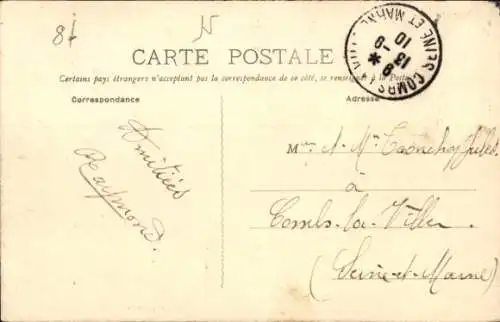 CARTE POSTALE
Certains pays étrangers n'acceptent pas la correspondance de ce côté, se renseigner à la Poste
Correspondance
Adresse
COMBS LA VILLE SEINE ET MARNE
13 - 9
10
Amitiés
Raymond.
M et Mme Jules
à
Combs-la-Ville
(Seine-et-Marne)